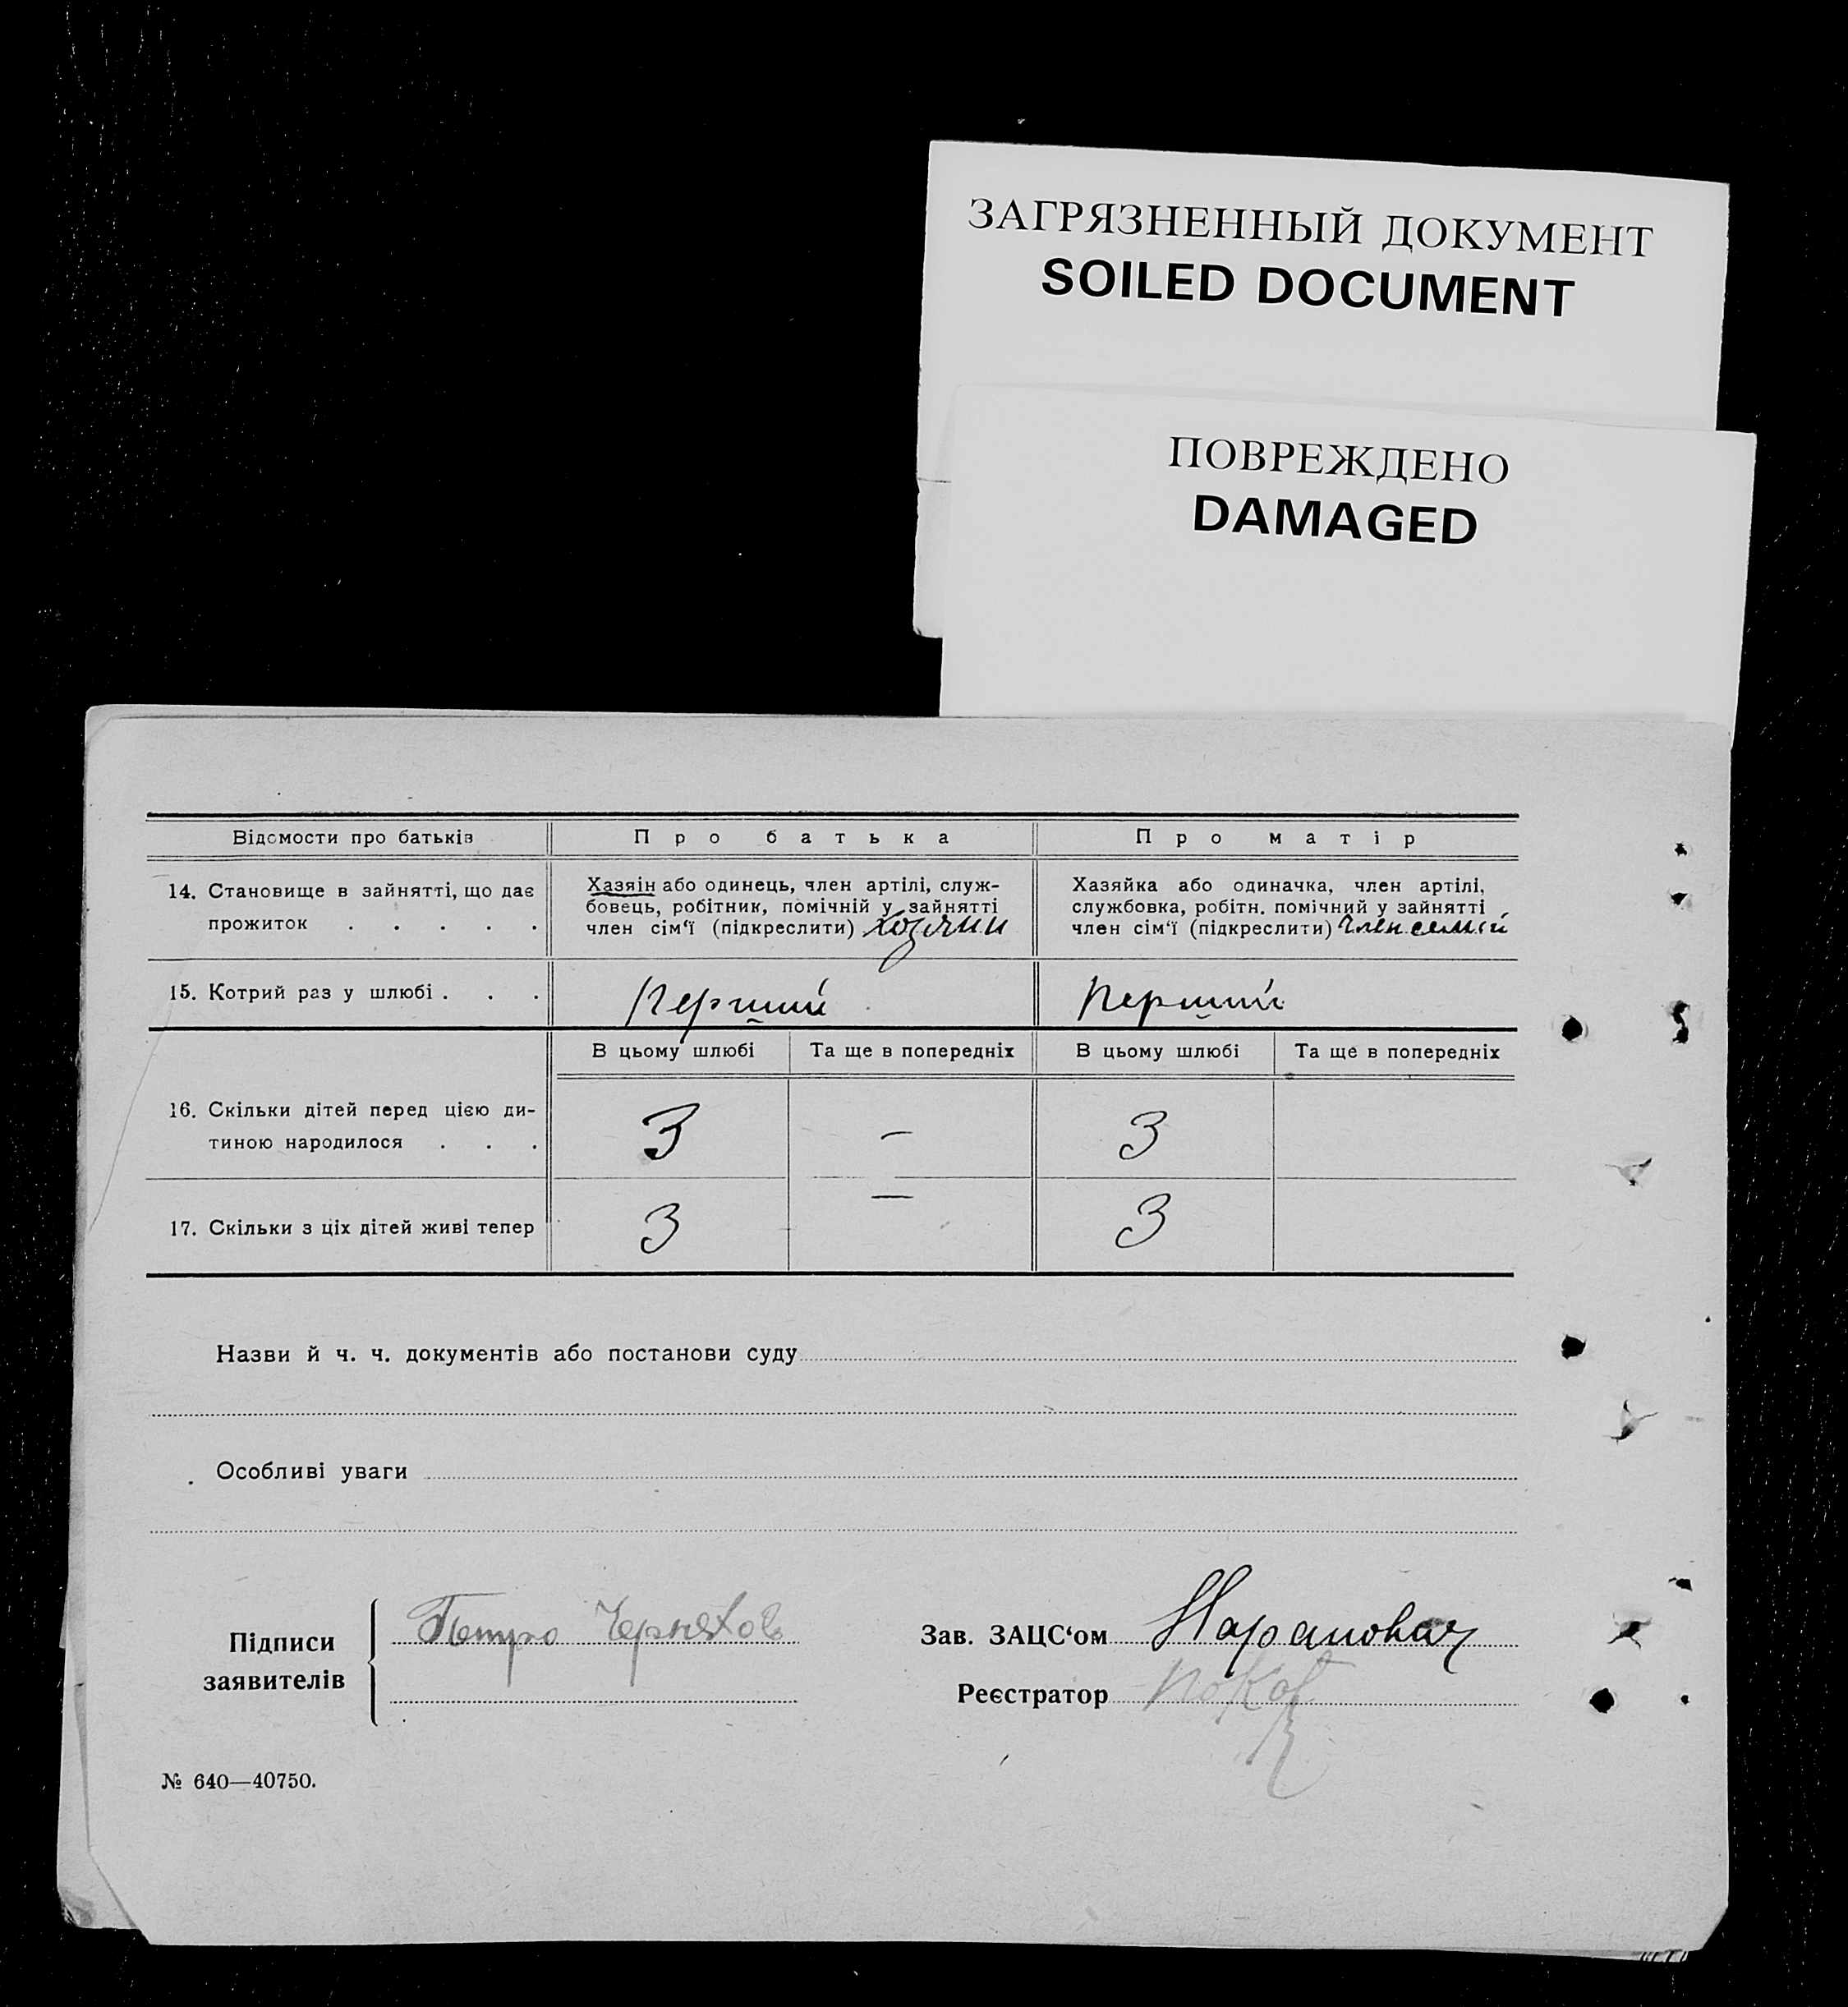 ЗАГРЯЗНЕННЫЙ ДОКУМЕНТ
SOILED DOCUMENT
ПОВРЕЖДЕНО
DAMAGED
Відомости про батьків Про батька Про матір
14. Становище в зайнятті, що дає прожиток . . . . .
Хазяін або одинець, член артілі, служ-
бовець, робітник, помічній у зайнятті
член сім'ї (підкреслити) хозяин
Хазяйка або одиначка, член артілі,
службовка, робітн. помічний у зайнятті
член сім'ї (підкреслити) член семьи
15. Котрий раз у шлюбі . . . Перший Перший
В цьому шлюбі Та ще в попередніх В цьому шлюбі Та ще в попередніх
16. Скільки дітей перед цією ди-
тиною народилося . . . 3 — 3
17. Скільки з ціх дітей живі тепер 3 — 3
Назви й ч. ч. документів або постанови суду
Особливі уваги
Підписи
заявителів
Петро Черняхов
Зав. ЗАЦС‘ом
Реєстратор
№ 640—40750.